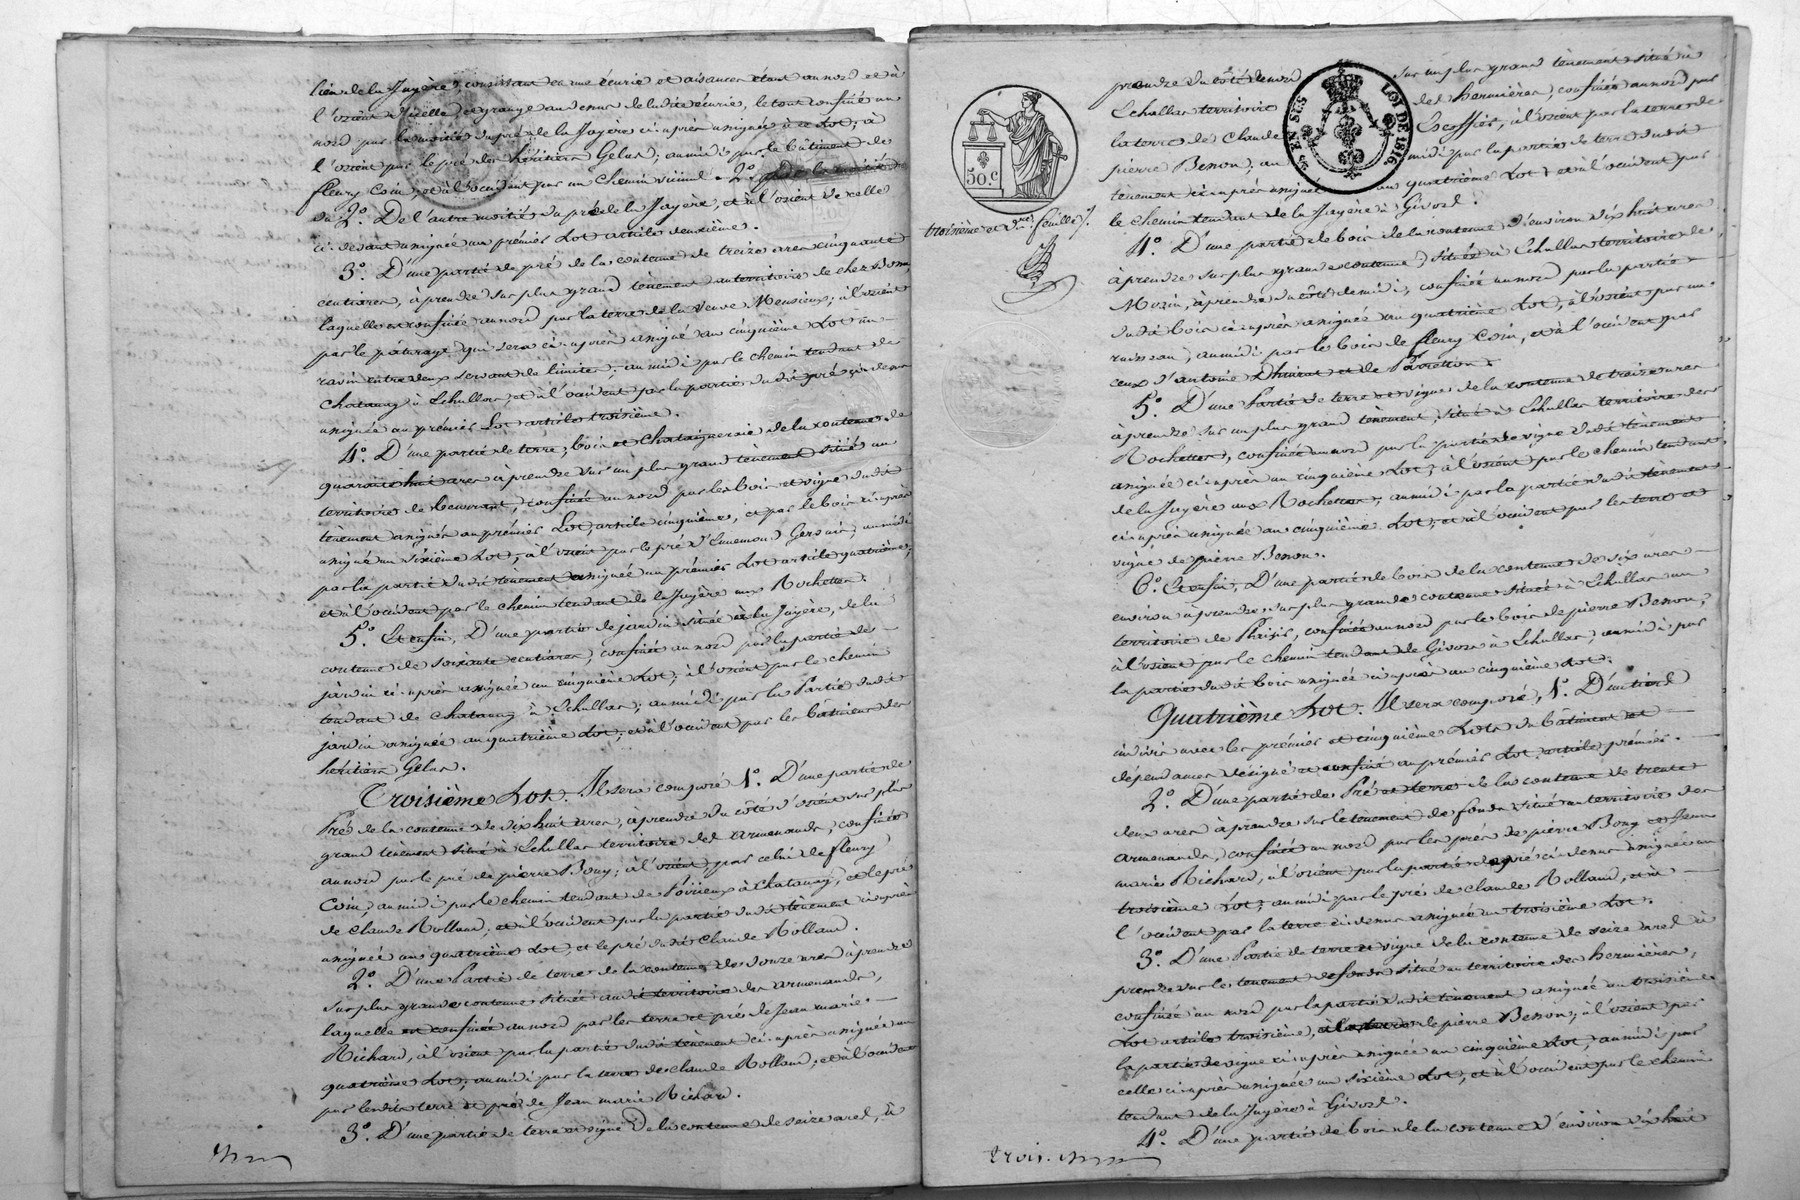 lieu de la Jayère, consistant en une écurie et aisances étant au nord et à
l'orient d'icelle et grange au dessus de ladite écurie, le tout confiné au
nord par la moitié du pré de la Jayère ci-après assignée à ce Lot, à
l'orient par le pré des héritiers Gelas; au midi par le bâtiment de
fleury Coin, et à l'occident par un chemin vicinal. 2°
2° De l'autre moitié du pré de la Jayère, et à l'orient de celle
ci-devant assignée au prémier Lot article deuxième.
3° D'une partie de pré de la contenue de treize ares cinquante
centiares, à prendre sur plus grand tènement au territoire de chez Bonn,
laquelle est confinée au nord par la terre de la Veuve Mensieux; à l'orient
par le pâturage qui sera ci-après assigné au cinquième Lot un
ravin entre deux servant de limites; au midi par le chemin tendant de
Chatanay à Echallas, et à l'occident par la partie dudit pré ci-dessus
assignée au premier Lot article troisième.
4° D'une partie de terre, bois et Chataigneraie de la contenue de
quarante huit ares à prendre sur un plus grand tènement situé au
territoire de confinée au nord par les bois et vigne dudit
tènement assignés au prémier Lot, article cinquième, et par le bois ci-après
assigné au sixième Lot; à l'orient par le pré d'Ennemond Gervais; au midi
par la partie dudit tènement assignée au prémier Lot article quatrième,
et à l'occident par le chemin tendant de la Jayère aux Rochettes.
5° Et enfin, D'une partie de jardin située à la Jayère, de la
contenue de soixante centiares, confinée au nord par la partie de
jardin ci-après assignée au cinquième Lot; à l'orient par le chemin
tendant de Chatanay à Echallas; au midi par la Partie dudit
jardin assignée au quatrième Lot, et à l'occident par les bâtimens des
héritiers Gelas.
Troisième Lot. Il sera composé 1° D'une partie de
Pré de la contenue de dix huit ares, à prendre du côté d'orient sur plus
grand tènement situé à Echallas territoire des armenauds, confinée
au nord par le pré de pierre Bony; à l'orient par celui de fleury
Coin, au midi par le chemin tendant de Poirieux à Chatanay, et le pré
de Claude Rolland, et à l'occident par la partie dudit tènement ci-après
assignée au quatrième Lot, et le pré dudit Claude Rolland.
2° D'une Partie de terre de la contenue de douze ares à prendre
sur plus grande contenue située audit territoire des armenauds,
laquelle est confinée au nord par les terre et pré de Jean marie
Richard, à l'orient par la partie dudit tènement ci-après assignée au
quatrième Lot, au midi par la terre de claude Rolland, et à l'occident
par lesdits terre et pré de Jean marie Richard.
3° D'une partie de terre et vigne de la contenue de seize ares, à
troisième et feuille
50.c
EN SUS
LOI DE 1816.
prendre du côté de nord sur un plus grand tènement situé à
Echallas territoire des hermières, confinée au nord par
la terre de Claude Escoffier, à l'orient par la terre de
pierre Benon, au midi par la partie de terre dudit
tènement ci-après assignée au quatrième Lot, et à l'occident par
le chemin tendant de la Jayère à Givors.
4° D'une partie de bois de la contenue d'environ dix huit ares
à prendre sur plus grande contenue, située à Echallas territoire de
Morin, à prendre du côté de midi, confinée au nord par la partie
dudit bois ci-après assignée au quatrième Lot, à l'orient par un
ruisseau, au midi par le bois de fleury Coin, et à l'occident par
ceux d'antoine et de
5° D'une Partie de terre et vigne de la contenue de treize ares
à prendre sur un plus grand tènement, situé à Echallas territoire des
Rochettes, confinée au nord par la partie de vigne dudit tènement
assignée ci-après au cinquième Lot, à l'orient par le chemin tendant
de la Jayère aux Rochettes, au midi par la partie dudit tènement
ci-après assignée au cinquième Lot, et à l'occident par les terre et
vigne de pierre Benon.
6° Et enfin, D'une partie de bois de la contenue de six ares
environ à prendre sur plus grande contenue située à Echallas au
territoire de Plaisir, confinée au nord par le bois de pierre Benon,
à l'orient par le chemin tendant de Givors à Echallas, au midi par
la partie dudit bois assignée ci-après au cinquième Lot.
Quatrième Lot. Il sera composé, 1° D'un tiers
indivis avec les prémier et cinquième Lots du bâtiment et
dépendances désigné et confiné au prémier Lot article prémier.
2° D'une partie de Pré et terre de la contenue de trente
deux ares à prendre sur le tènement de fonds situé au territoire des
armenauds, confinée au nord par les prés de pierre Bony et Jean
marie Richard, à l'orient par la partie de pré ci-dessus assignée au
troisième Lot, au midi par le pré de Claude Rolland, et à
l'occident par la terre ci-dessus assignée au troisième Lot.
3° D'une Partie de terre et vigne de la contenue de seize ares à
prendre sur le tènement de fonds situé au territoire des hermières,
confinée au nord par la partie dudit tènement assignée au troisième
Lot article troisième, de pierre Benon; à l'orient par
la partie de vigne ci-après assignée au cinquième Lot, au midi par
celle ci-après assignée au sixième Lot, et à l'occident par le chemin
tendant de la Jayère à Givors.
4° D'une partie de bois de la contenue d'environ dix huit
trois.